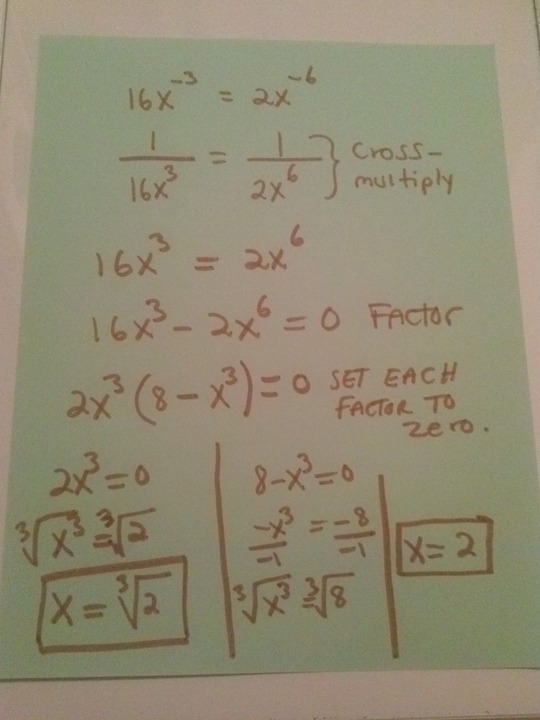 16x⁻³ = 2x⁻⁶
1/16x³ = 1/2x⁶ } Cross-
multiply
16x³ = 2x⁶
16x³ - 2x⁶ = 0 FACTOR
2x³(8 - x³) = 0 SET EACH
FACTOR TO
zero.
2x³ = 0
³√x³ = ³√2
x = ³√2
8 - x³ = 0
-x³/-1 = -8/-1
³√x³ = ³√8
x = 2